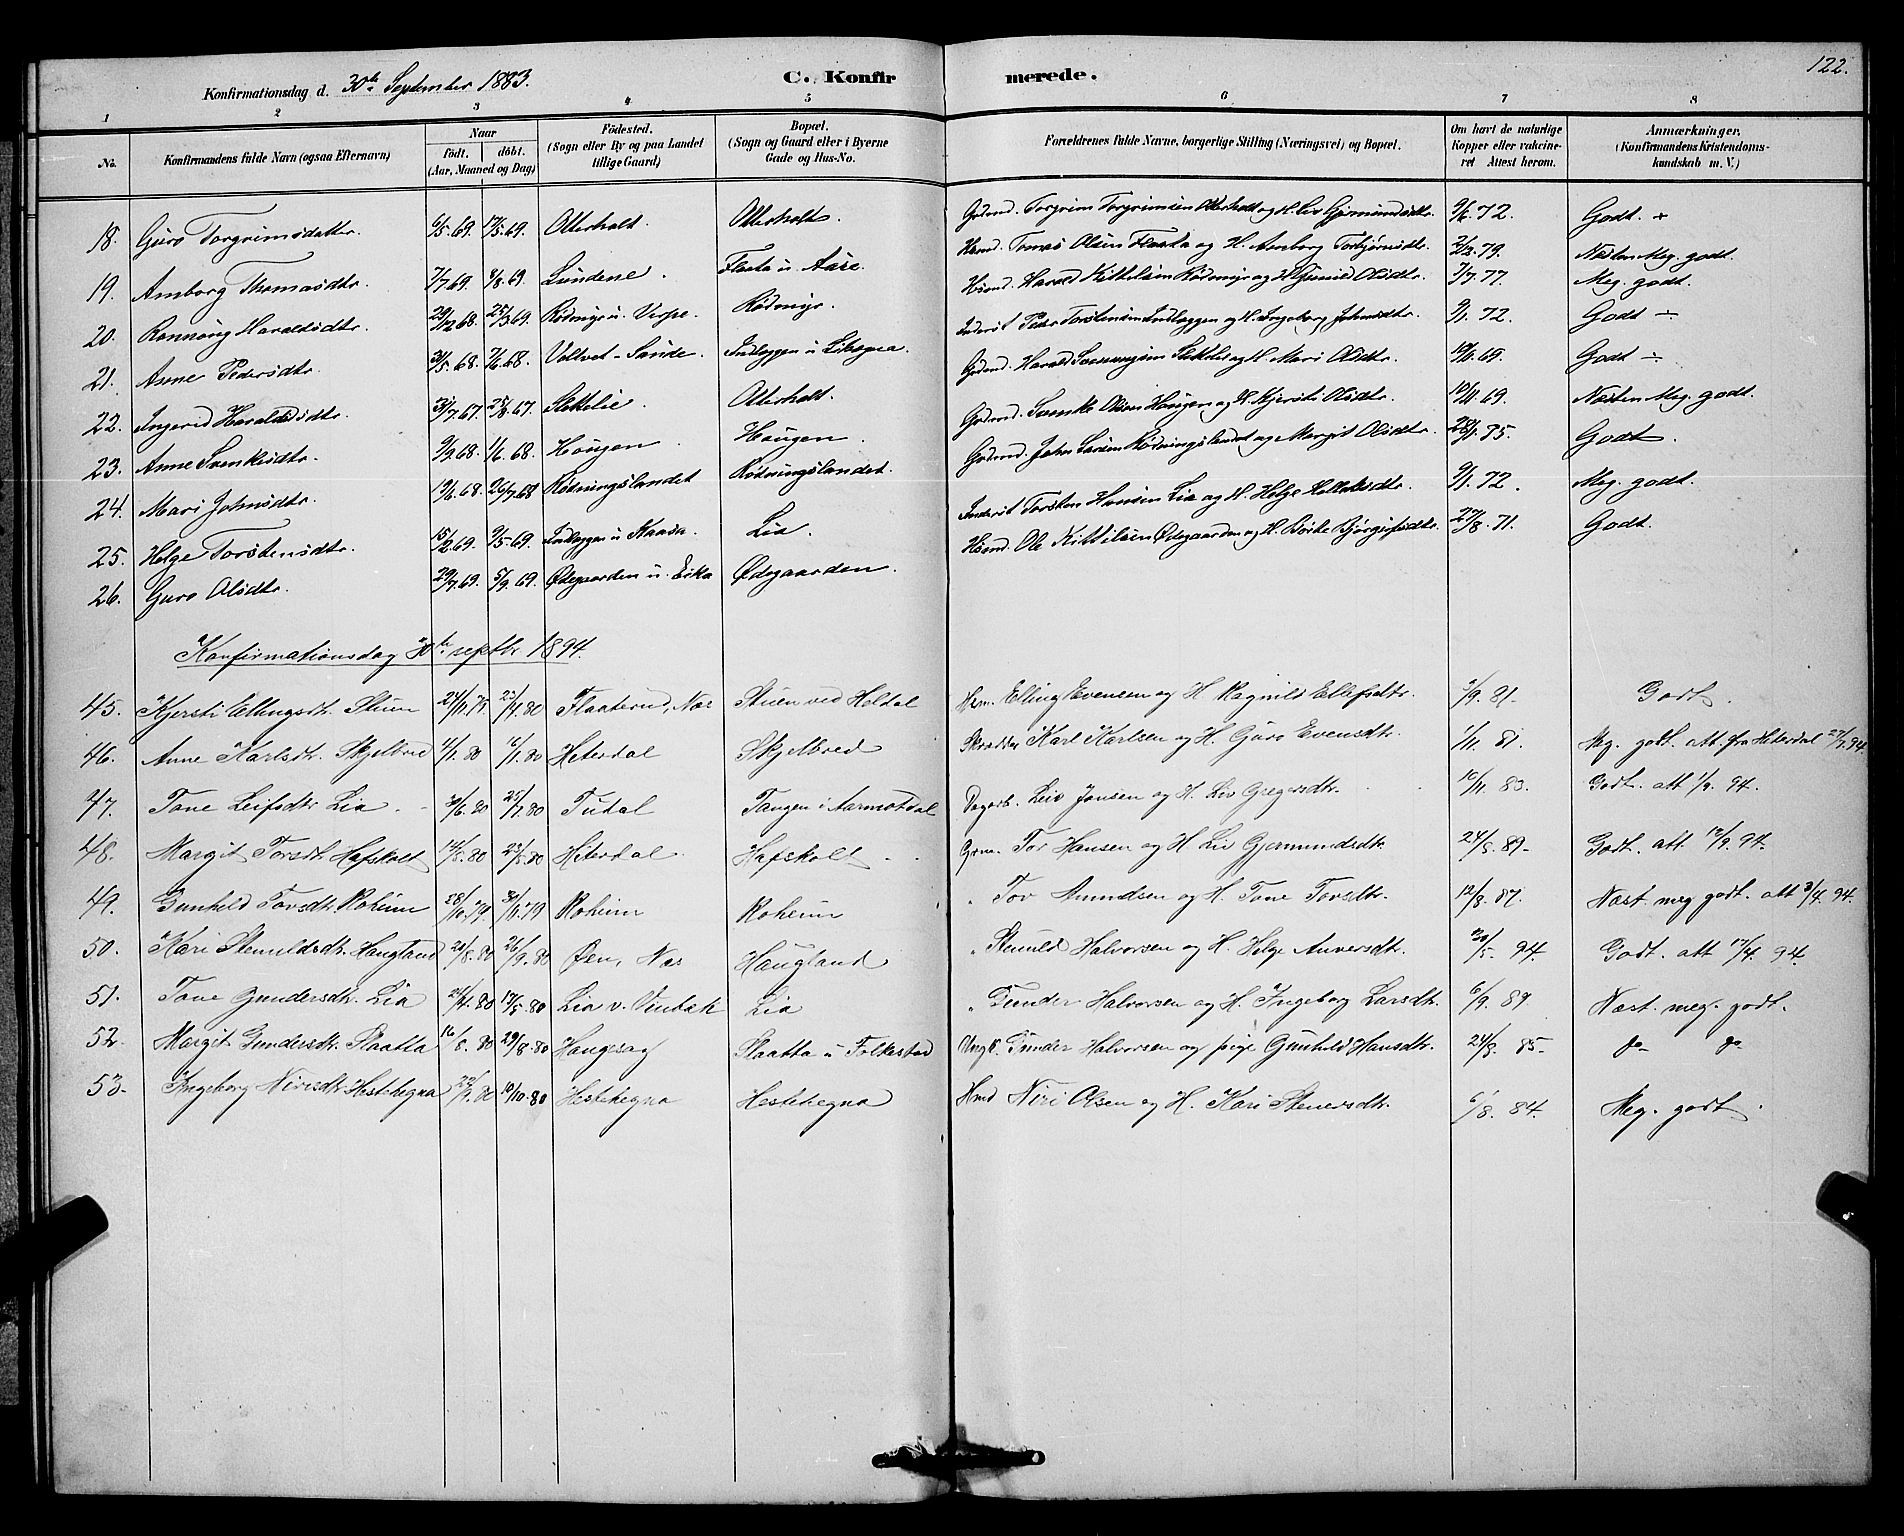 122.
Konfirmationsdag d. 30te September 1883. C. Konfirmerede.
1 2 3 4 5 6 7 8
No. Konfirmandens fulde Navn (ogsaa Efternavn) Naar født, døbt. (Aar, Maaned og Dag) Fødested. (Sogn eller By og paa Landet tillige Gaard) Bopæl. (Sogn og Gaard eller i Byerne Gade og Hus-No. Forældrenes fulde Navne, borgerlige Stilling (Næringsvei) og Bopæl. Om havt de naturlige Kopper eller vakcineret Attest herom. Anmærkninger. (Konfirmandens Kristendomskundskab m. V.)
18. Guro Torgrimsdatter. 6/5.69. 17/5.69. Otterholt. Otterholt. Gdmd. Torgrim Torgrimsen Otterholt og H. Liv Gjermundsdtr. 9/6.72. Godt. +
19. Amborg Thomasdtr. 7/7.69. 8/8.69. Lundene. Flaata u. Aase. Hsmd. Tomas Olsen Flaata og H. Amborg Torbjørnsdtr. 2/12.79. Næsten Meg. godt.
20. Rønnaug Haraldsdtr. 29/12.68. 25/3.69. Rødmyr u. Verpe. Rødmyr. Hsmd. Harald Kittelsen Rødmyr og H. Gunild Olsdtr. 7/7.77. Meg. godt.
21. Anne Pedersdtr. 31/5.68. 7/6.68. Valvet-Sande. Indlæggen u. Libogna. Inderst Peder Torstensen Indlæggen og H. Ingeborg Johnsdtr. 9/1.72. Godt ÷
22. Ingerid Haraldsdtr. 31/7.67. 25/8.67. Slettelie. Otterholt. Gdmd. Harald og H. Mari Olsdtr. 69. Godt ÷
23. Anne Svenkesdtr. 9/3.68. 1/6.68. Haugen. Haugen. Gdmd. Svenke Olsen Haugen og H. Kjersti Olsdtr. 10/11.69. Næsten Meg. godt.
24. Mari Johnsdtr. 19/6.68. 26/7.68 Rødningslandet Rødningslandet. Gdmd. John Larsen Rødningslandet og Margit Olsdtr. 75. Godt.
25. Helge Torstensdtr. 15/2.69. 9/5.69. Indlæggen u Kaasa. Lia. Inderst Torsten Hansen Lia og H. Helge 9/1.72. Meg. godt.
26. Guro Olsdtr. 29/7.69. 5/9.69. Ødegaarden u. Eika Ødegaarden. Hsmd. Ole Kittelsen Ødegaarden og H. Birte Bjørgufsdtr. 27/8.71. Godt.
Konfirmationsdag 30te septbr 1894.
45. Kjersti Ellingsdtr. Stuen 24/11.79. 25/4.80 Flaaterud, Næs Stuen ved Heldal Hsm. Elling Evensen og H. Ragnild Ellefsdtr. 7/9.81- Godt.
46. Anne Karlsdtr. Skjelbred 4/1.80 6/1.80 Hiterdal Skjelbred Skrædder Karl Karlsen og H. Guro Evensdtr. 1/11.81. Meg. godt. att. fra Hiterdal 27/9.94.
47. Tone Leifsdtr Lia. 30/6.80 25/7.80 Tudal Tangen i Aarmotdal Dagarb. Leiv Jonsen og H. Liv Gregersdtr. 10/11.83. Godt. att 1/9.94.
48. Margit Torsdtr. Hafskolt 14/5.80 23/5.80 Hiterdal. Hafskolt Grm. Tor Hansen og H. Liv Gjermundsdtr. 24/5.89- Godt. att. 12/9.94.
49. Gunhild Torsdtr. Roheim 28/10.79. 30/11.79 Roheim Roheim " Tov Amundsen og H. Tone Torsdtr. 12/8.87. Næst. meg godt. att 3/4.94.
50. Kari Stenuldsdtr. Haugland 20/8.80 26/9.80 Øen, Næs Haugland " Stenuld Halvorsen og H. Helge Anversdtr. 30/5.94. Godt. att 17/4.94.
51. Tone Gundersdtr. Lia 24/4.80 17/5.80 Lia v. Vinbæk Lia " Gunder Halvorsen og H. Ingeborg Larsdtr. 6/9.89 Næst. meg. godt.
52. Margit Gundersdtr. Slaatta 16/8.80 29/8.80 Haugesag Slaatta u Folkestad Ungk. Gunder Halvorsen og pige Gunhild Hansdtr. 24/8.85- do- do-
53. Ingeborg Nirisdtr. Hestehegna 22/9.80 10/10.80 Hestehegna Hestehegna Hmd Niri Olsen og H. Kari Stenersdtr. 6/8.84. Meg. godt.